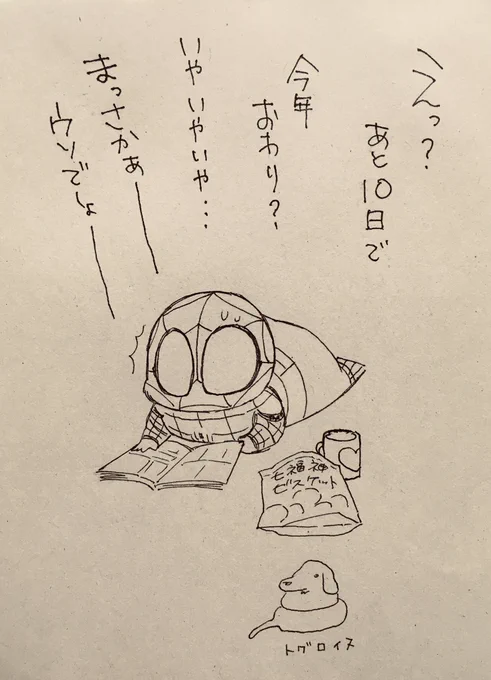 へんっ?
あと10日で
今年
おわり?
いやいやいや…
まっさかぁー
ウソでしょー
七福神
ビスケット
トグロイヌ